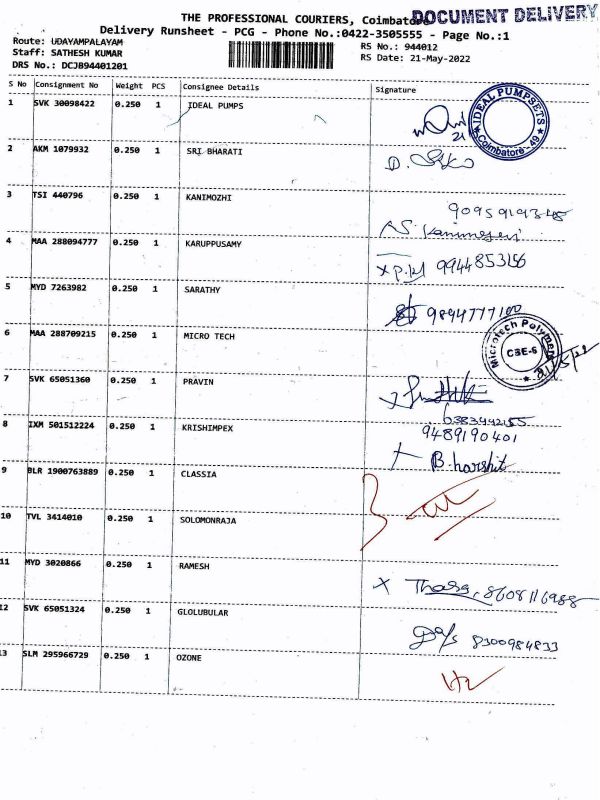 THE PROFESSIONAL COURIERS, Coimbatore
DOCUMENT DELIVERY
Delivery Runsheet - PCG - Phone No.:0422-3505555 - Page No.:1
Route: UDAYAMPALAYAM
RS No.: 944012
Staff: SATHESH KUMAR
RS Date: 21-May-2022
DRS No.: DCJB94401201
S No Consignment No Weight PCS Consignee Details Signature
1 SVK 30098422 0.250 1 IDEAL PUMPS
21
IDEAL PUMPSETS
Coimbatore - 49
2 AKM 1079932 0.250 1 SRI BHARATI
D.
3 TSI 440796 0.250 1 KANIMOZHI
9095919348
4 MAA 288094777 0.250 1 KARUPPUSAMY
9944853156
5 MYD 7263982 0.250 1 SARATHY
9894777100
6 MAA 288709215 0.250 1 MICRO TECH
Microtech Polymers
CBE-6
21/5/22
7 SVK 65051360 0.250 1 PRAVIN
6383442155
8 IXM 501512224 0.250 1 KRISHIMPEX
9489190401
B. harshit
9 BLR 1900763889 0.250 1 CLASSIA
10 TVL 3414010 0.250 1 SOLOMONRAJA
11 MYD 3020866 0.250 1 RAMESH
X 8608116988
12 SVK 65051324 0.250 1 GLOLUBULAR
8300984833
13 SLM 295966729 0.250 1 OZONE